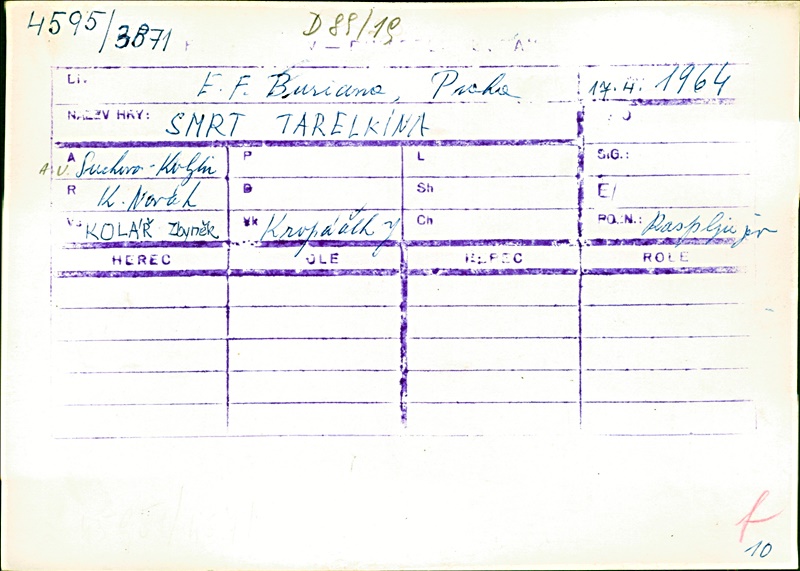 4595/3871 D 89/19
DI: E. F. Buriana, Praha 17. 4. 1964
NÁZEV HRY: SMRT TARELKINA
A Suchovo-Kobylin P L SIG.:
R K. Novák D Sh
KOLÁŘ Zbyněk Vk Kropáček Ch POZN.: Raspljujev
HEREC ROLE HEREC ROLE
10